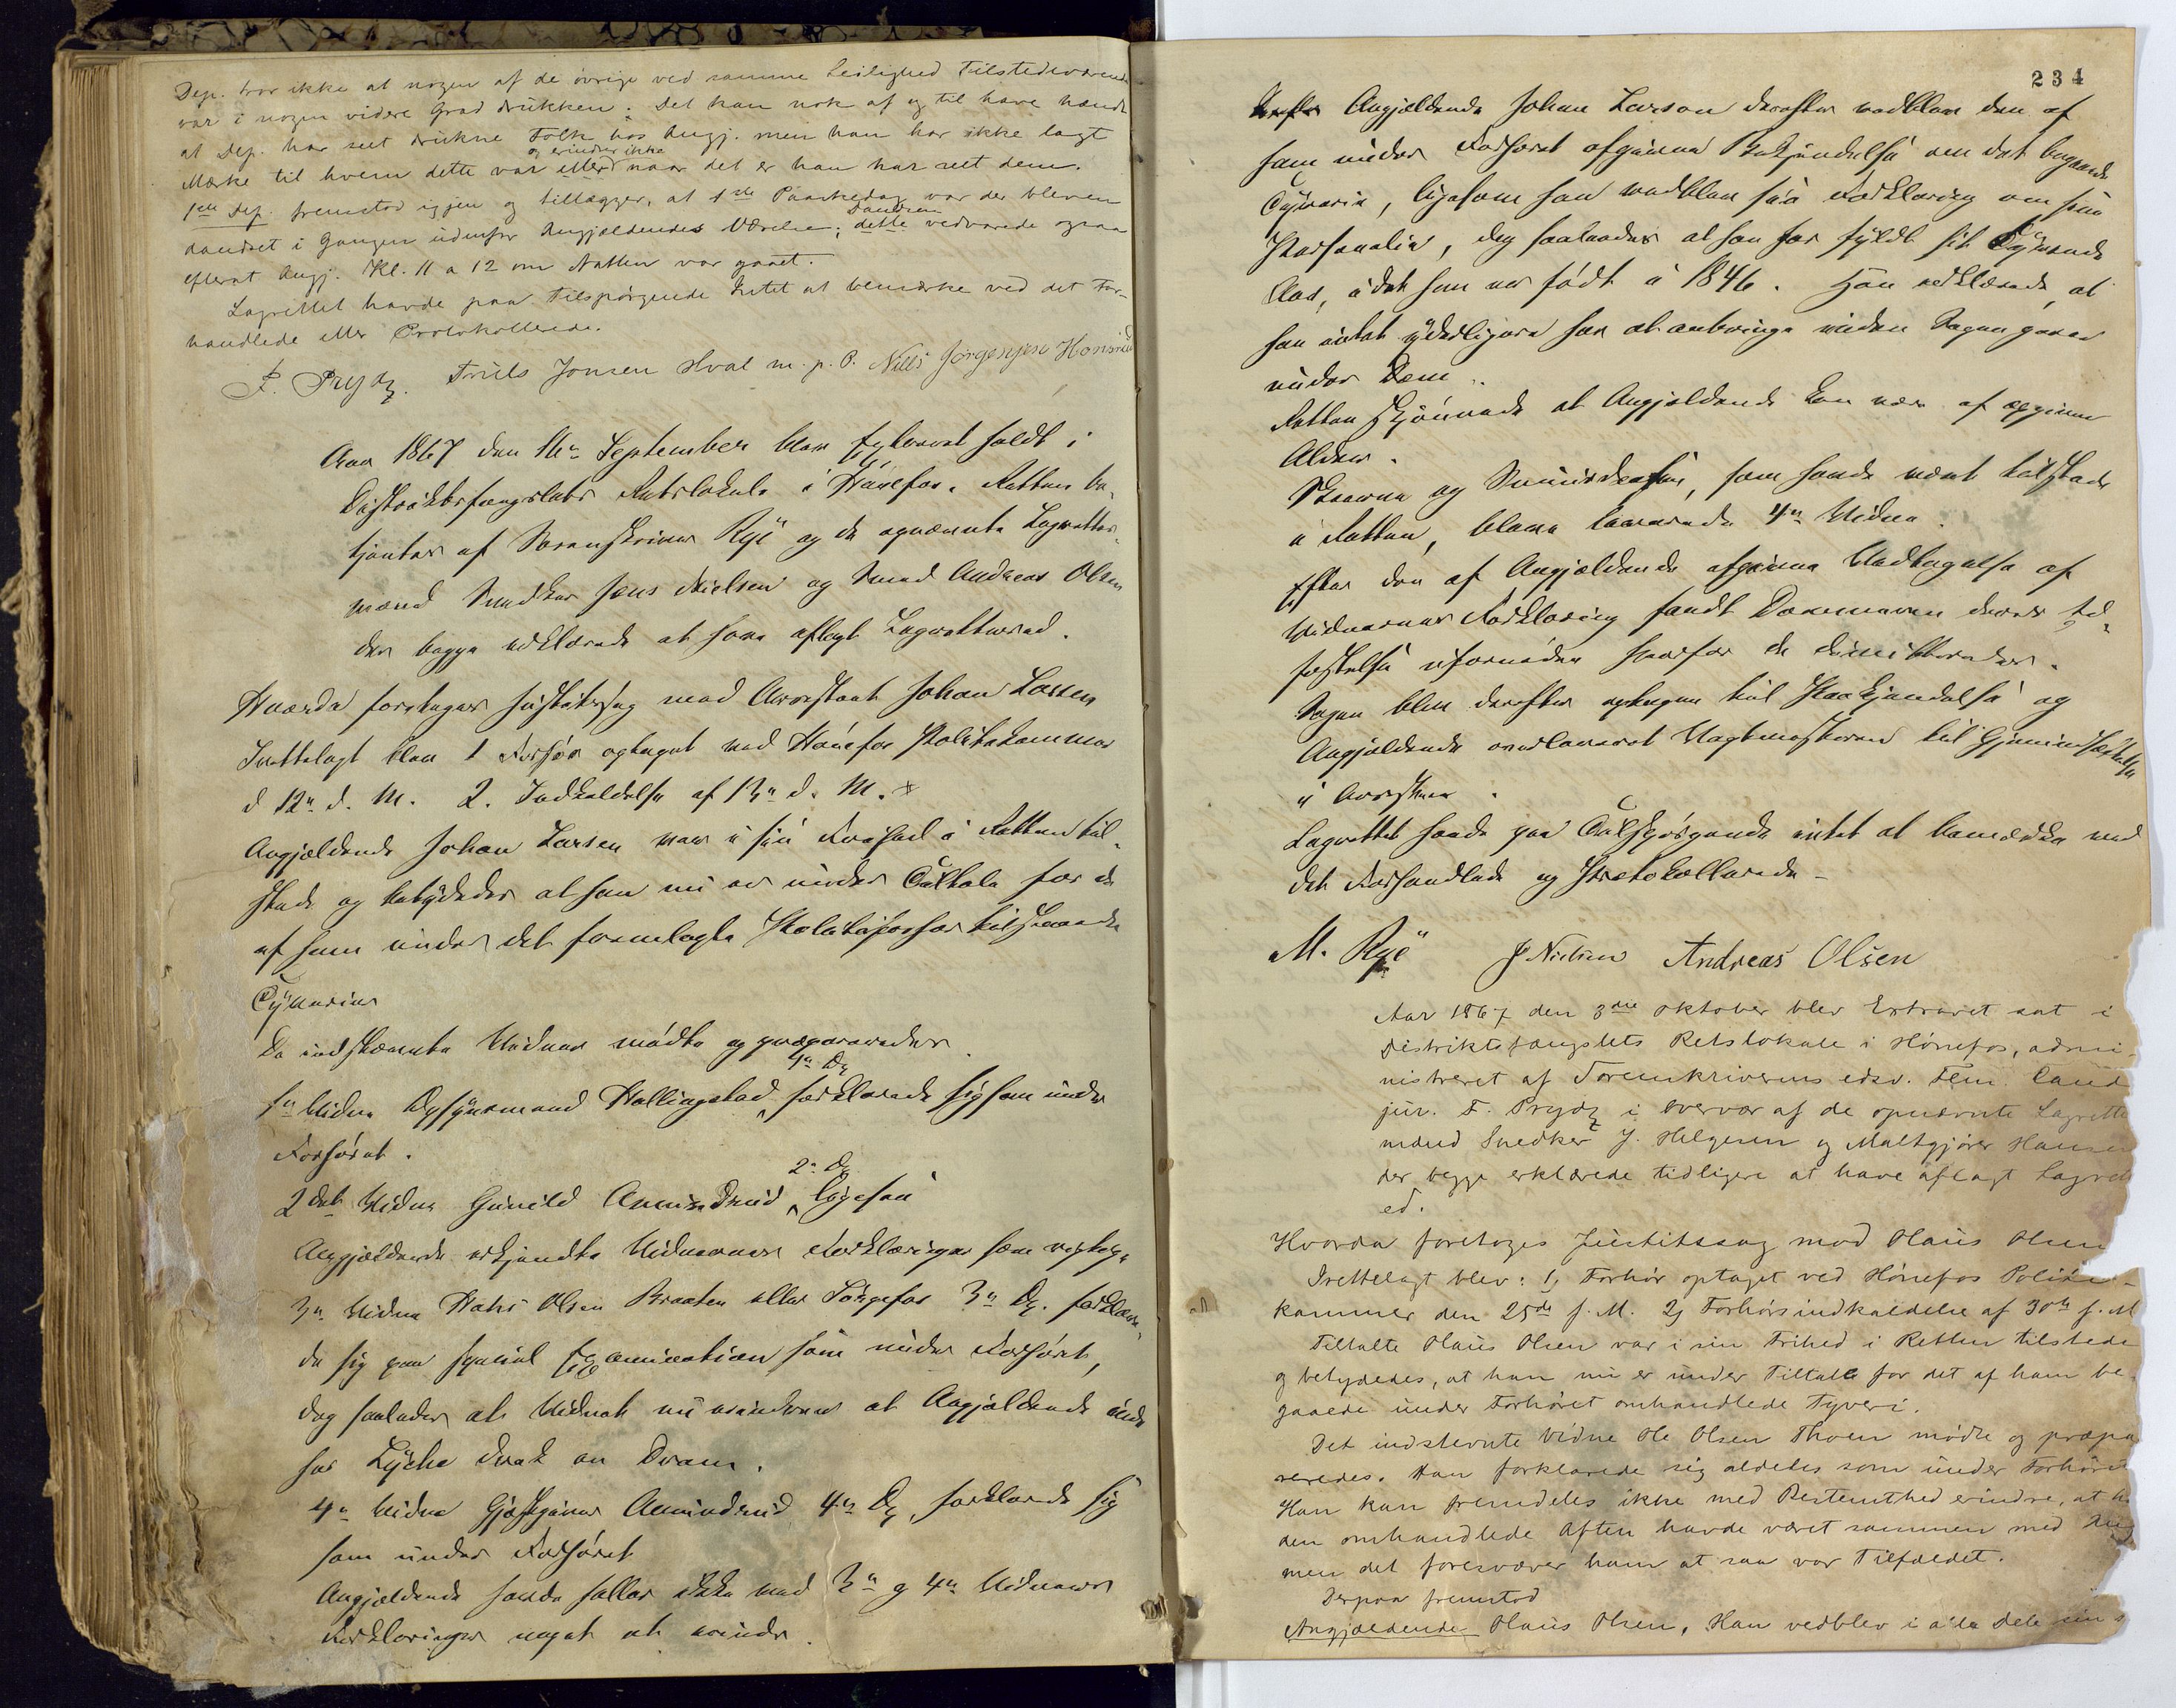 Dep. tror ikke at nogen af de övrige ved samme Leilighed Tilstedeværende
var i nogen videre Grad drukken. Det kan nok af og til have hændt
at Dep. har seet drukne Folk hos Angj. men han har ikke lagt
og erindrer ikke
Mærke til hvem dette var eller naar det er han har seet dem.
1ste Dep. fremstod igjen og tillægger, at 1ste Paaskedag var der bleven
Dandsen
dandset i Gangen udenfor Angjældendes Værelse; dette vedvarede ogsaa
efterat Angj. Kl. 11 a 12 om Natten var gaaet.
Lagrettet havde paa Tilspörgende Intet at bemærke ved det For-
handlede eller Protokollerede.
F. Prydz. Truls Jonsen Hval m. p. P. Nills Jörgensen Honsrud
Aar 1867 den 16de September blev Extraret holdt i
Distriktsfængslets Retslokale i Hönefos. Retten be-
tjentes af Sorenskriver Rye og de opnævnte Lagrettes-
mænd Snedker Jens Nielsen og Smed Andreas Olsen
der begge erklærede at have aflagt Lagrettesed.
Hvorda foretages Justitssag mod Arrestant Johan Larsen
Irettelagt blev 1 Forhör optaget ved Hönefos Politikammer
d 12te d. M. 2. Indkaldelse af 13de d. M.
Angjældende Johan Larsen var i sin Frihed i Retten til-
stede og betydedes at han nu er under Tiltale for de
af ham under det fremlagte Politiforhör tilstaaede
Tyverier
De indstævnte Vidner mödte og præpareredes.
4de Dg
1ste Vidne Opsynsmand Hallingstad forklarede sig som under
Forhöret.
2de Dg
2det Vidne Gunild Amundrud ligesaa
Angjældende erkjendte Vidnernes Forklaringer som rigtige.
3de Vidne Hans Olsen Braaten eller Songefos 3de Dg. forklare-
de sig paa special Examination som under Forhöret,
dog saaledes at Vidnet nu erindrer at Angjældende inde
hos Lyche drak en Dram.
4de Vidne Gjæstgiver Amundrud 4de Dg, forklarede sig
som under Forhöret
Angjældende havde heller ikke ved 3de og 4de Vidnernes
Forklaringer noget at erindre.
234
Angjældende Johan Larsen derefter vedblev den af
ham under Forhöret afgivne Bekjendelse om det begaaede
Tyveri, ligesom han vedblev sin Forklaring om sine
Personalia, dog saaledes at han har fyldt sit Tyvende
Aar, idet han er födt i 1846. Han erklærede, at
han intet yderligere har at anbringe inden Sagen gaaer
under Dom.
Retten skjönnede at Angjældende kan være af opgiven
Alder.
Efter den af Angjældende afgivne Vedtagelse af
Vidnernes Forklaring fandt Dommeren deres Ed-
fæstelse ufornöden hvorfor de dimitteredes.
Sagen blev derefter optagen til Paakjendelse og
Angjældende overleveret Vagtmesteren til Gjenindsættelse
i Arresten.
Lagrettet havde paa Tilspörgende intet at bemærke ved
det Forhandlede og Protokollerede -
M. Rye J Nielsen Andreas Olsen
Aar 1867 den 3die Oktober blev Extraret sat i
Distriktsfængslets Retslokale i Hönefos, admi-
nistreret af Sorenskriverens edsv. Fem. Cand
jur. F. Prydz i Overvær af de opnævnte Lagrette
mænd Snedker J. Helgesen og Maltgjörer Hansen
der begge erklærede tidligere at have aflagt Lagrett
ed.
Hvorda foretoges Justitssag mod Olaus Olsen
Irettelagt blev: 1, Forhör optaget ved Hönefos Politi-
kammer den 25de f. M. 2, Forhörsindkaldelse af 30te f. M
Tiltalte Olaus Olsen var i sin Frihed i Retten tilstede
og betydedes, at han nu er under Tiltale for det af ham be-
gaaede under Forhöret omhandlede Tyveri.
Det indstevnte Vidne Ole Olsen Thoen mödte og præpa
reredes. Han forklarede sig aldeles som under Forhöret
Han kan fremdeles ikke med Bestemthed erindre, at h
den omhandlede Aften havde været sammen med Ang
men det foresvæver ham at saa var Tilfældet.
Derpaa fremstod
Angjældende Olaus Olsen, Han vedblev i alle Dele sin